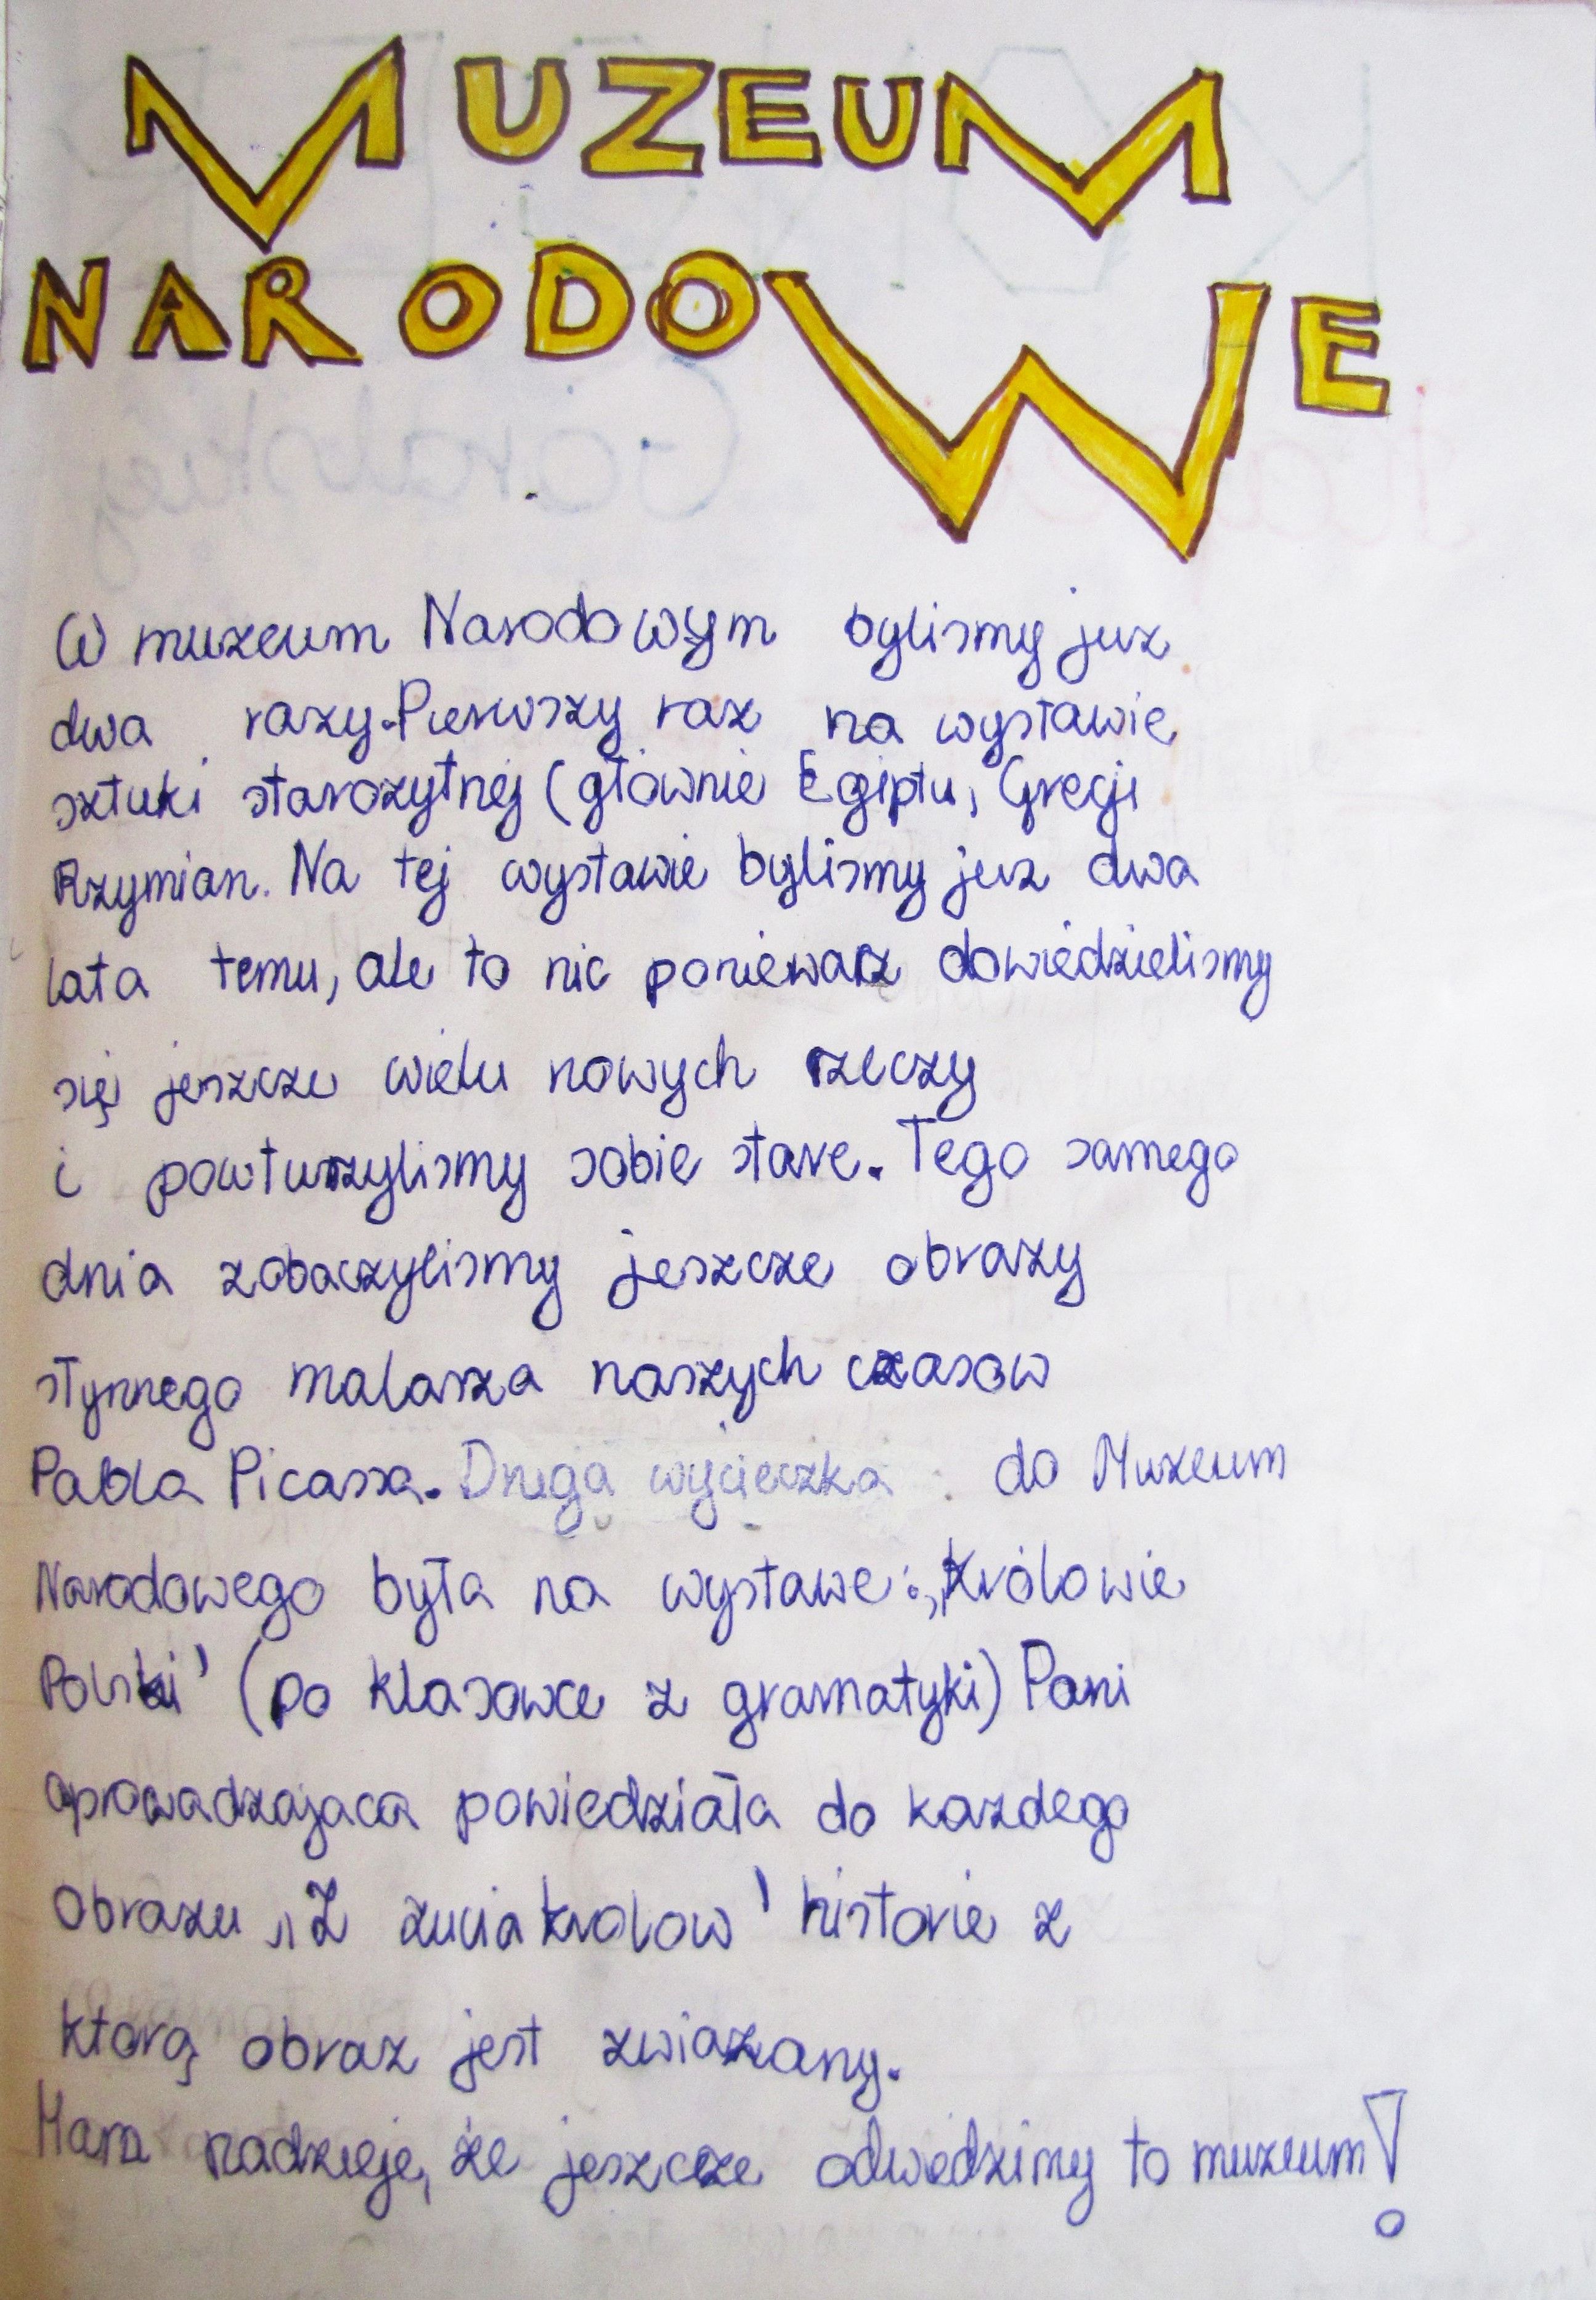 MUZEUM
NARODOWE
W muzeum Narodowym bylismy juz
dwa razy. Pierwszy raz na wystawie
sztuki starozytnej (głownie Egiptu, Grecji
Rzymian. Na tej wystawie bylismy juz dwa
lata temu, ale to nic poniewarz dowiedzielismy
się jeszcze wielu nowych rzeczy
i powturzylismy sobie stare. Tego samego
dnia zobaczylismy jeszcze obrazy
słynnego malarza naszych czasow
Pabla Picassa. Druga wycieczka do Muzeum
Narodowego była na wystawe: „Królowie
Polski" (po klasowce z gramatyki) Pani
oprowadzajaca powiedziała do kazdego
Obrazu „Z zucia krolow" historie z
ktorą obraz jest zwiazany.
Mam nadzieje, że jeszcze odwedzimy to muzeum!